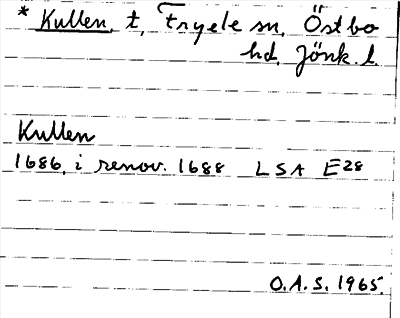 * Kullen, t, Tryele sn, Östbo
hd, Jönk. l.
Kullen
1686, i renov. 1688 LSA E28
O.A.S. 1965.